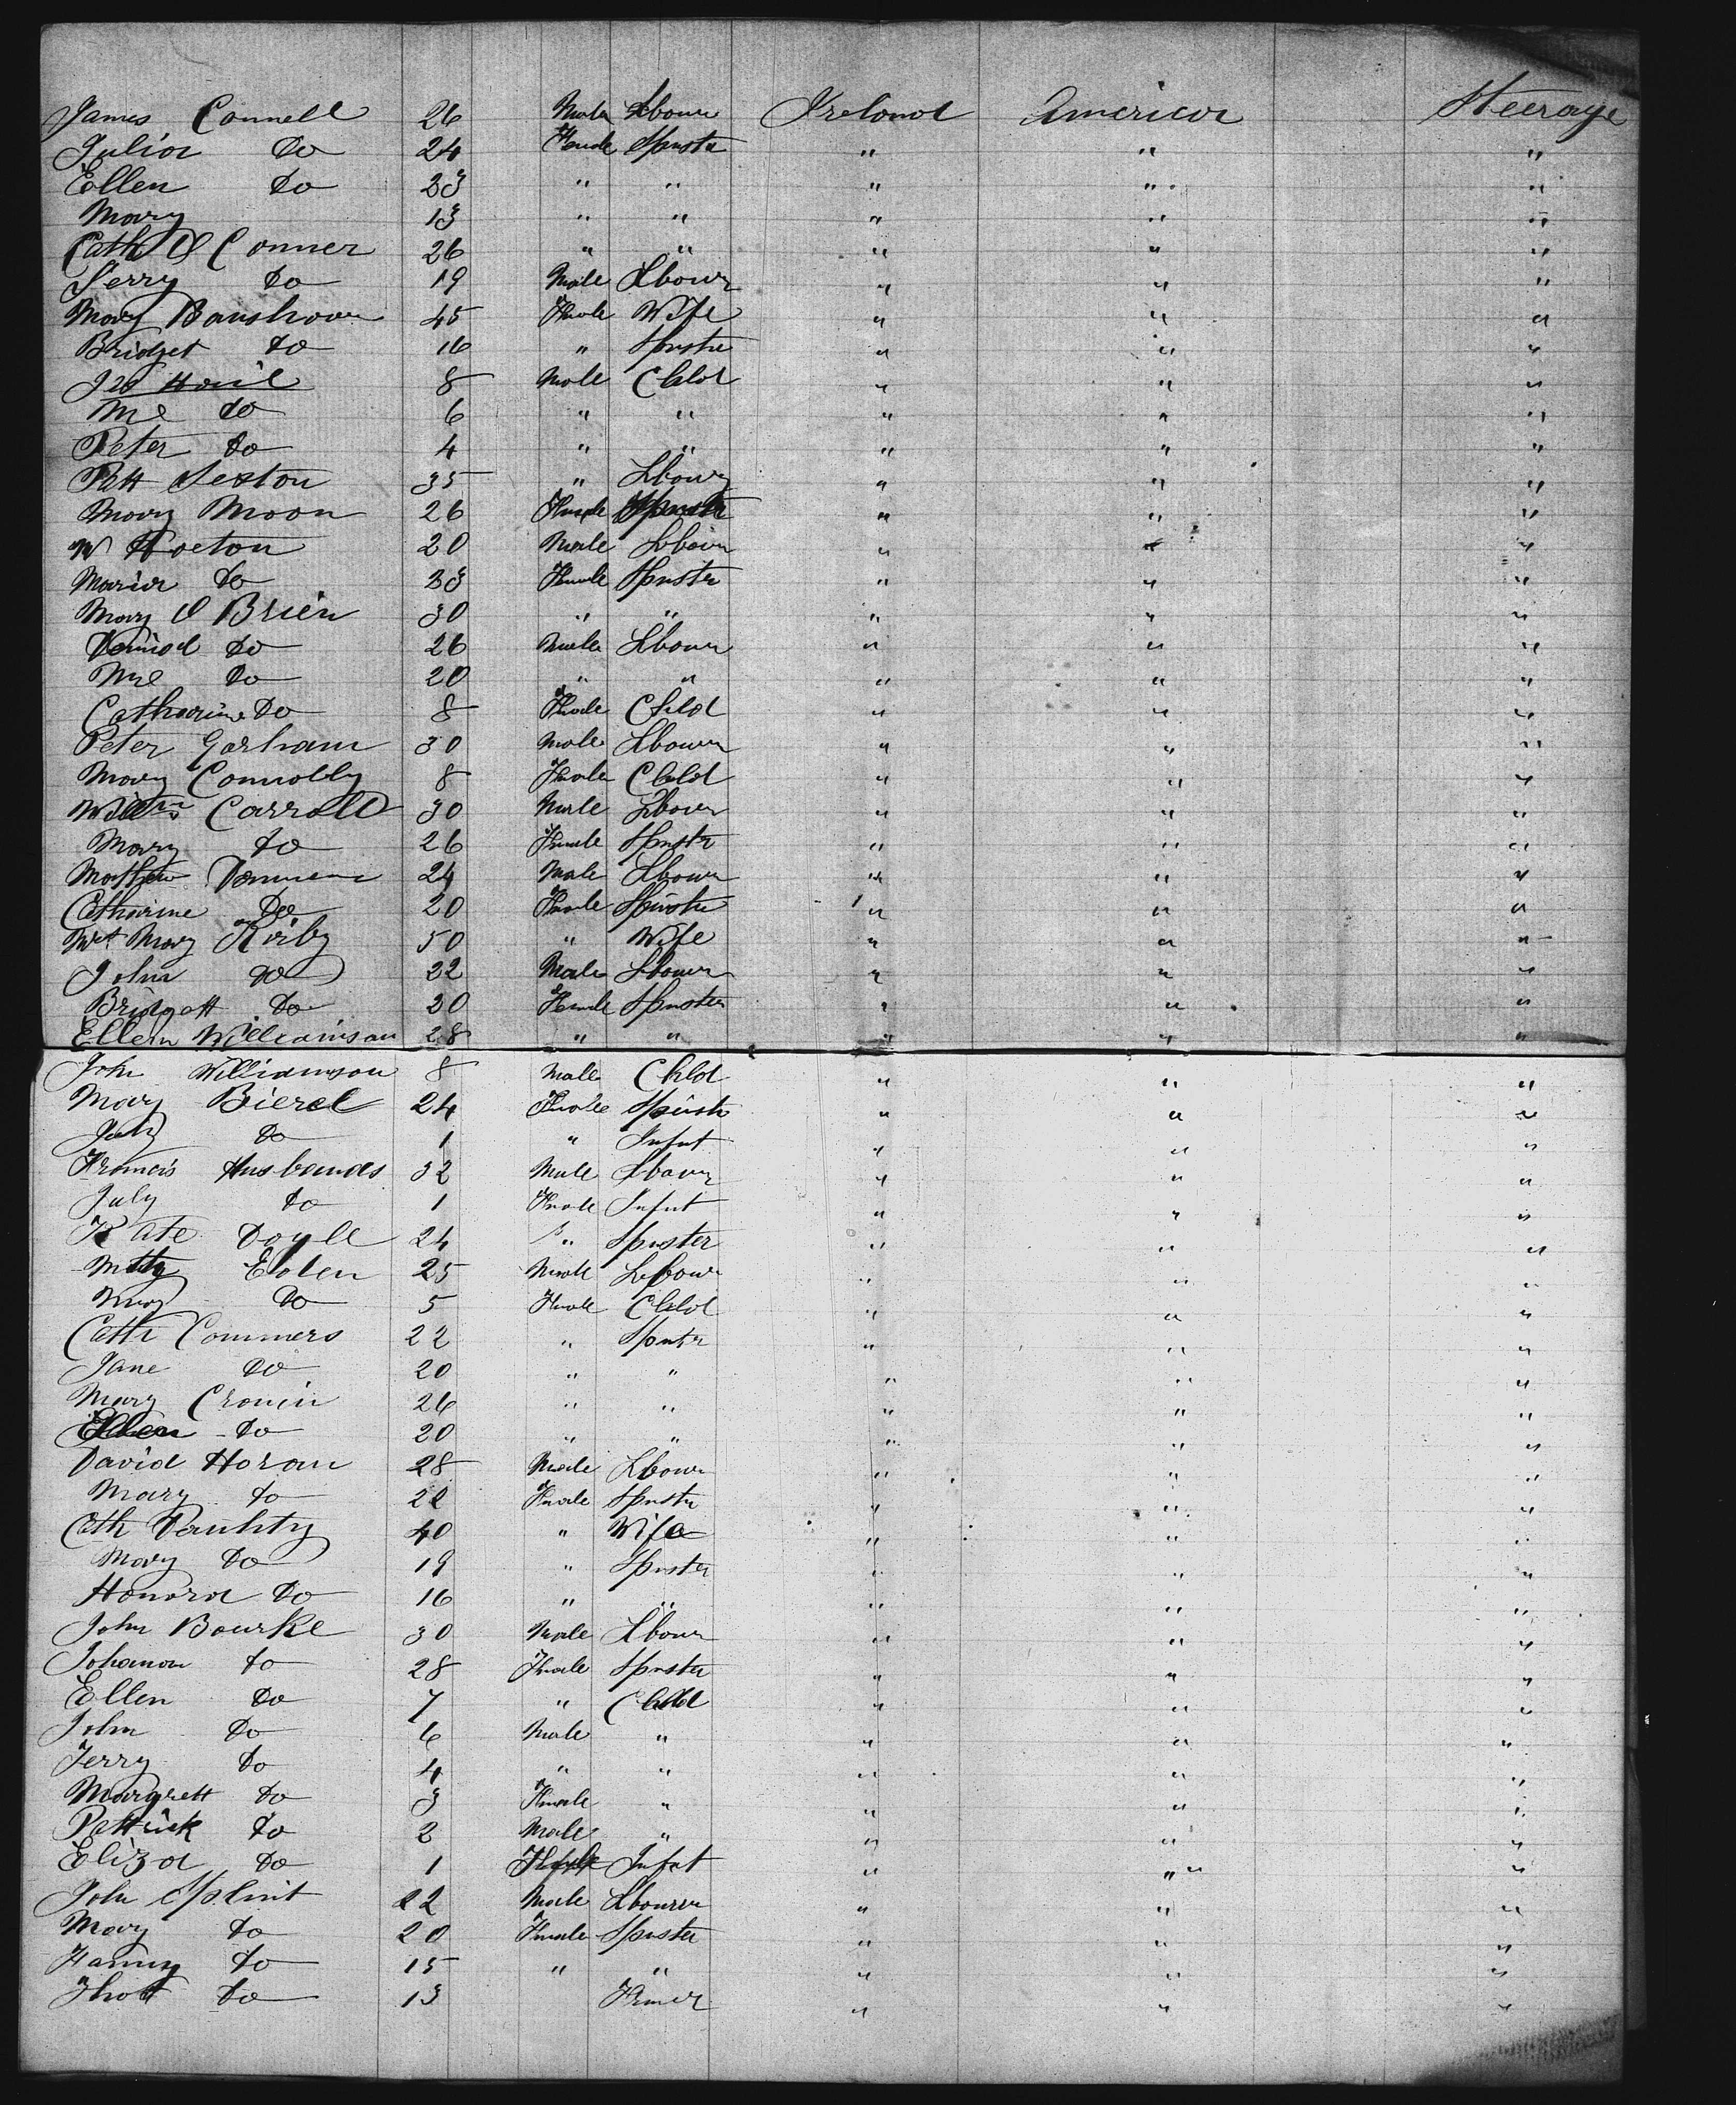 James Connell 26 Male Lbour Ireland America Steerage
Julia Do 24 Fmale Spnstr " " "
Ellen Do 23 " " " " "
Mary 13 " " " " "
Cath O Conner 26 " " " " "
Jerry Do 19 Male Lbour " " "
Mary 45 Fmale Wife " " "
Bridget Do 16 " Spnstr " " "
8 Male Chld " " "
Do 6 " " " " "
Peter Do 4 " " " " "
Patt Sexton 35 " Lbour " " "
Mary Moon 26 Fmale Spnstr " " "
W Hoeton 20 Male Lbour " " "
Maria Do 23 Fmale Spnstr " " "
Mary O Brien 30 " " " " "
Do 26 Male Lbour " " "
Do 20 " " " " "
Catharine Do 8 Fmale Chld " " "
Peter Garham 30 Male Lbour " " "
Mary Connolly 8 Fmale Chld " " "
Willm Carroll 30 Male Lbour " " "
Mary Do 26 Fmale Spnstr " " "
Mathew 24 Male Lbour " " "
Catharine Do 20 Fmale Spnstr " " "
Mrs Mary Kirby 50 " Wife " " "
John Do 22 Male Lbour " " "
Bridgett Do 20 Fmale Spnster " " "
Ellen Williamson 28 " " " " "
John Williamson 8 Male Chld " " "
Mary Bierel 24 Fmale Spnstr " " "
Do 1 " Infnt " " "
Francis Husbands 32 Male Lbour " " "
July Do 1 Fmale Infnt " " "
Kate Doyle 24 " Spnster " " "
25 Male Lbour " " "
Mary Do 5 Fmale Chld " " "
Cath Conners 22 " Spnstr " " "
Jane Do 20 " " " " "
Mary Cronin 26 " " " " "
Ellen Do 20 " " " " "
David Horan 28 Male Lbour " " "
Mary Do Fmale Spnstr " " "
Cath 40 " Wife " " "
Mary Do 19 " Spnster " " "
Honora Do 16 " " " " "
John Bourke 30 Male Lbour " " "
Johanna Do 28 Fmale Spnster " " "
Ellen Do 7 " Chld " " "
John Do 6 Male " " " "
Jerry Do 4 " " " " "
Margrett Do 3 Fmale " " " "
Pattrick Do 2 Male " " " "
Eliza Do 1 Fmale Infnt " " "
John Splint 22 Male Lbourer " " "
Mary Do 20 Fmale Spnster " " "
Fanny Do 15 " " " " "
Do 13 " " "